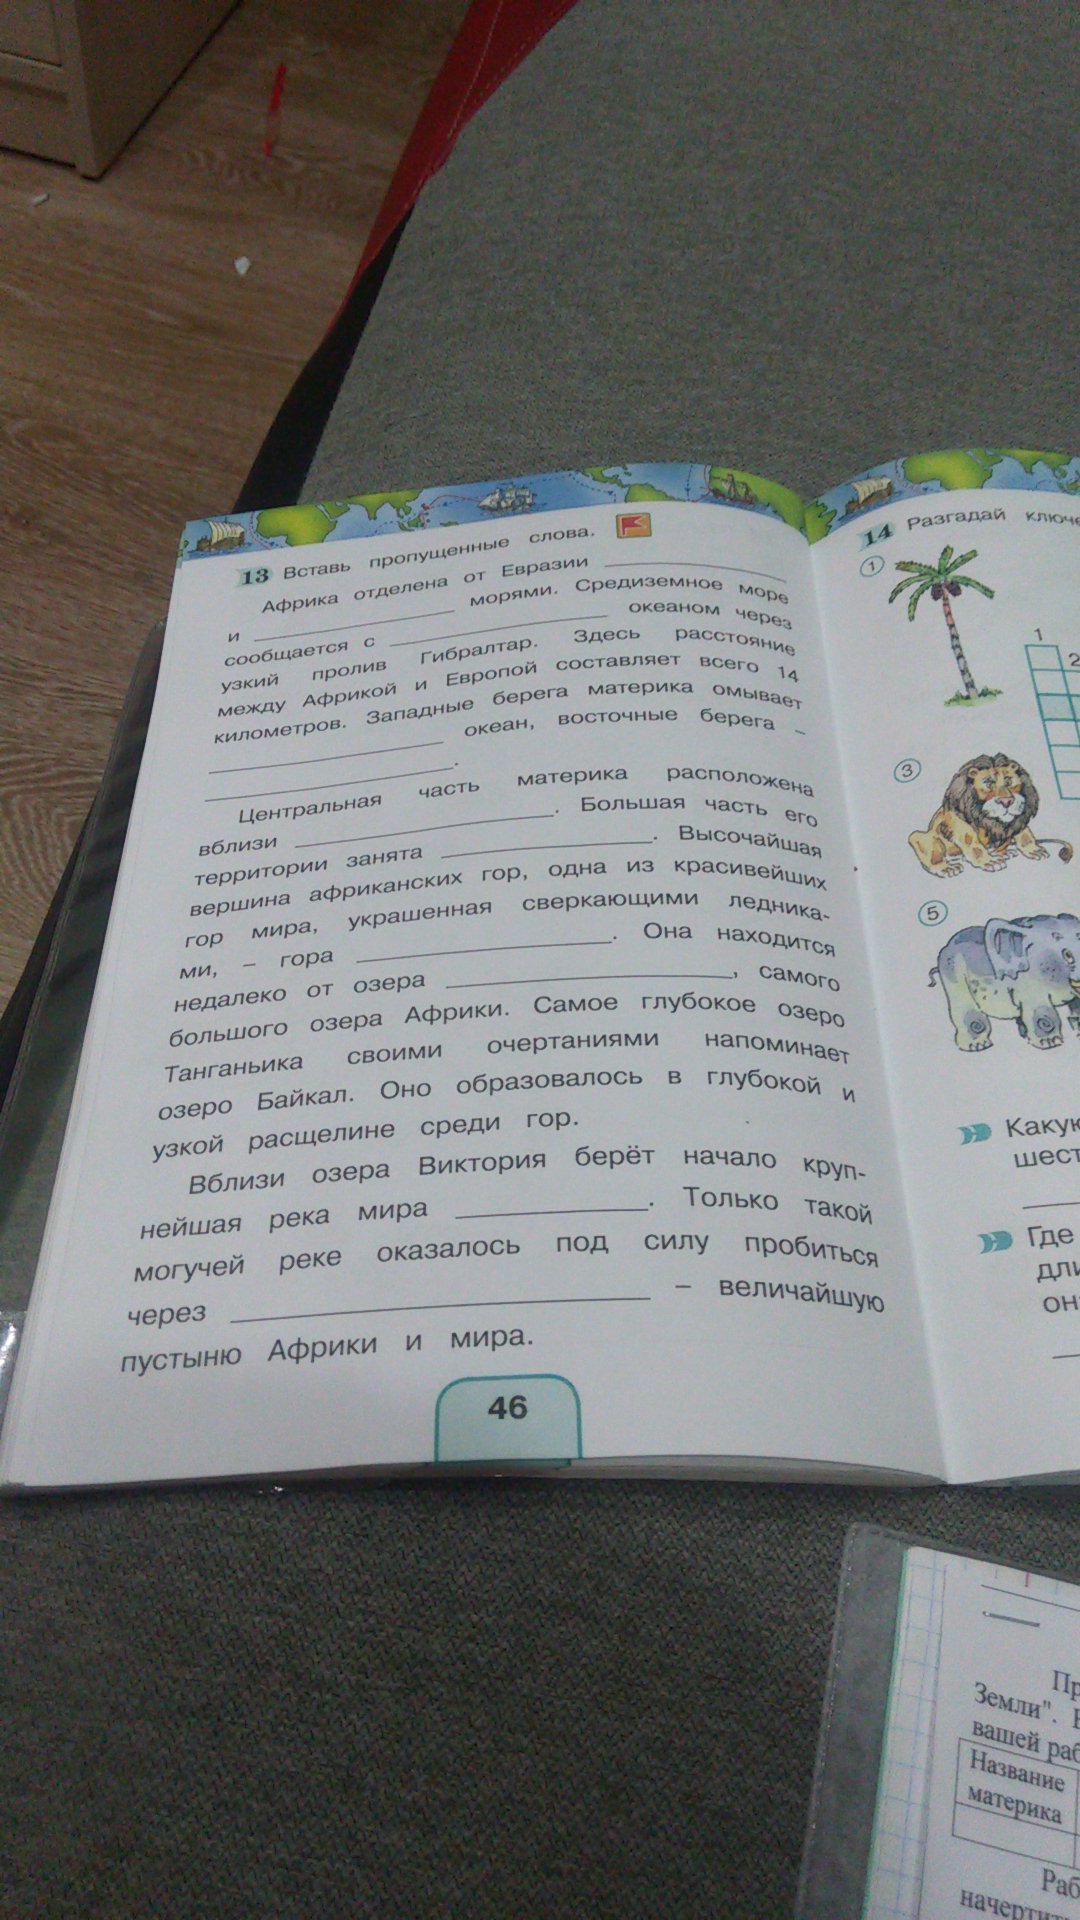 13 Вставь пропущенные слова.
Африка отделена от Евразии
и морями. Средиземное море
сообщается с океаном через
узкий пролив Гибралтар. Здесь расстояние
между Африкой и Европой составляет всего 14
километров. Западные берега материка омывает
океан, восточные берега –
.
Центральная часть материка расположена
вблизи . Большая часть его
территории занята . Высочайшая
вершина африканских гор, одна из красивейших
гор мира, украшенная сверкающими ледника-
ми, – гора . Она находится
недалеко от озера , самого
большого озера Африки. Самое глубокое озеро
Танганьика своими очертаниями напоминает
озеро Байкал. Оно образовалось в глубокой и
узкой расщелине среди гор.
Вблизи озера Виктория берёт начало круп-
нейшая река мира . Только такой
могучей реке оказалось под силу пробиться
через – величайшую
пустыню Африки и мира.
46
14 Разгадай
1
1
2
3
5
Где
Земли".
вашей
Название
материка